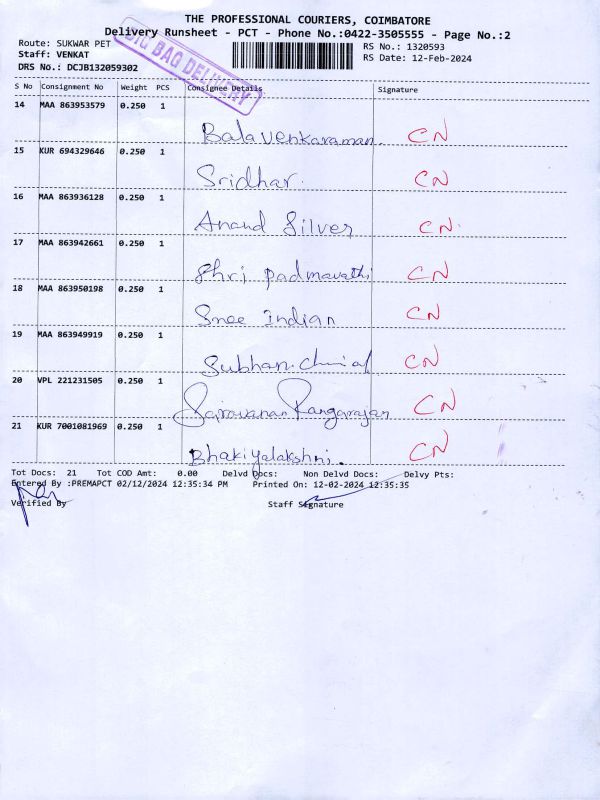 THE PROFESSIONAL COURIERS, COIMBATORE
Delivery Runsheet - PCT - Phone No.:0422-3505555 - Page No.:2
Route: SUKWAR PET
RS No.: 1320593
Staff: VENKAT
RS Date: 12-Feb-2024
DRS No.: DCJB132059302
BIG BAG DELIVERY
S No Consignment No Weight PCS Consignee Details Signature
14 MAA 863953579 0.250 1
Balavenkaraman. CN
15 KUR 694329646 0.250 1
Sridhar. CN
16 MAA 863936128 0.250 1
Anand Silver CN.
17 MAA 863942661 0.250 1
Shri padmavathi CN
18 MAA 863950198 0.250 1
Sree indian CN
19 MAA 863949919 0.250 1
Subhan. CN
20 VPL 221231505 0.250 1
Saravanan Rangarajan CN
21 KUR 7001081969 0.250 1
Bhakiyalakshmi. CN
Tot Docs: 21 Tot COD Amt: 0.00 Delvd Docs: Non Delvd Docs: Delvy Pts:
Entered By :PREMAPCT 02/12/2024 12:35:34 PM Printed On: 12-02-2024 12:35:35
Verified By Staff Signature